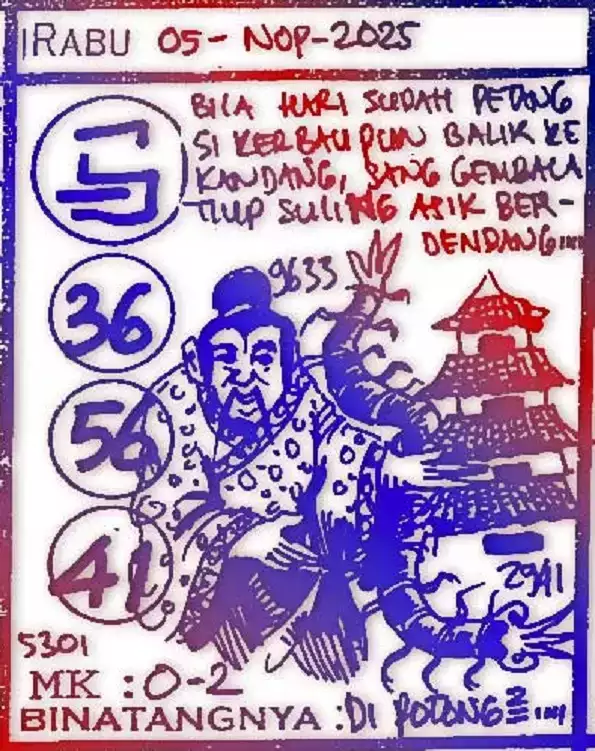 RABU 05-NOP-2025
BILA HARI SUDAH PETANG
SI KERBAU PUN BALIK KE
KANDANG, SANG GEMBALA
TIUP SULING ASIK BER-
DENDANG
36
9633
56
41
2941
5301
MK : 0-2
BINATANGNYA : DI POTONG2